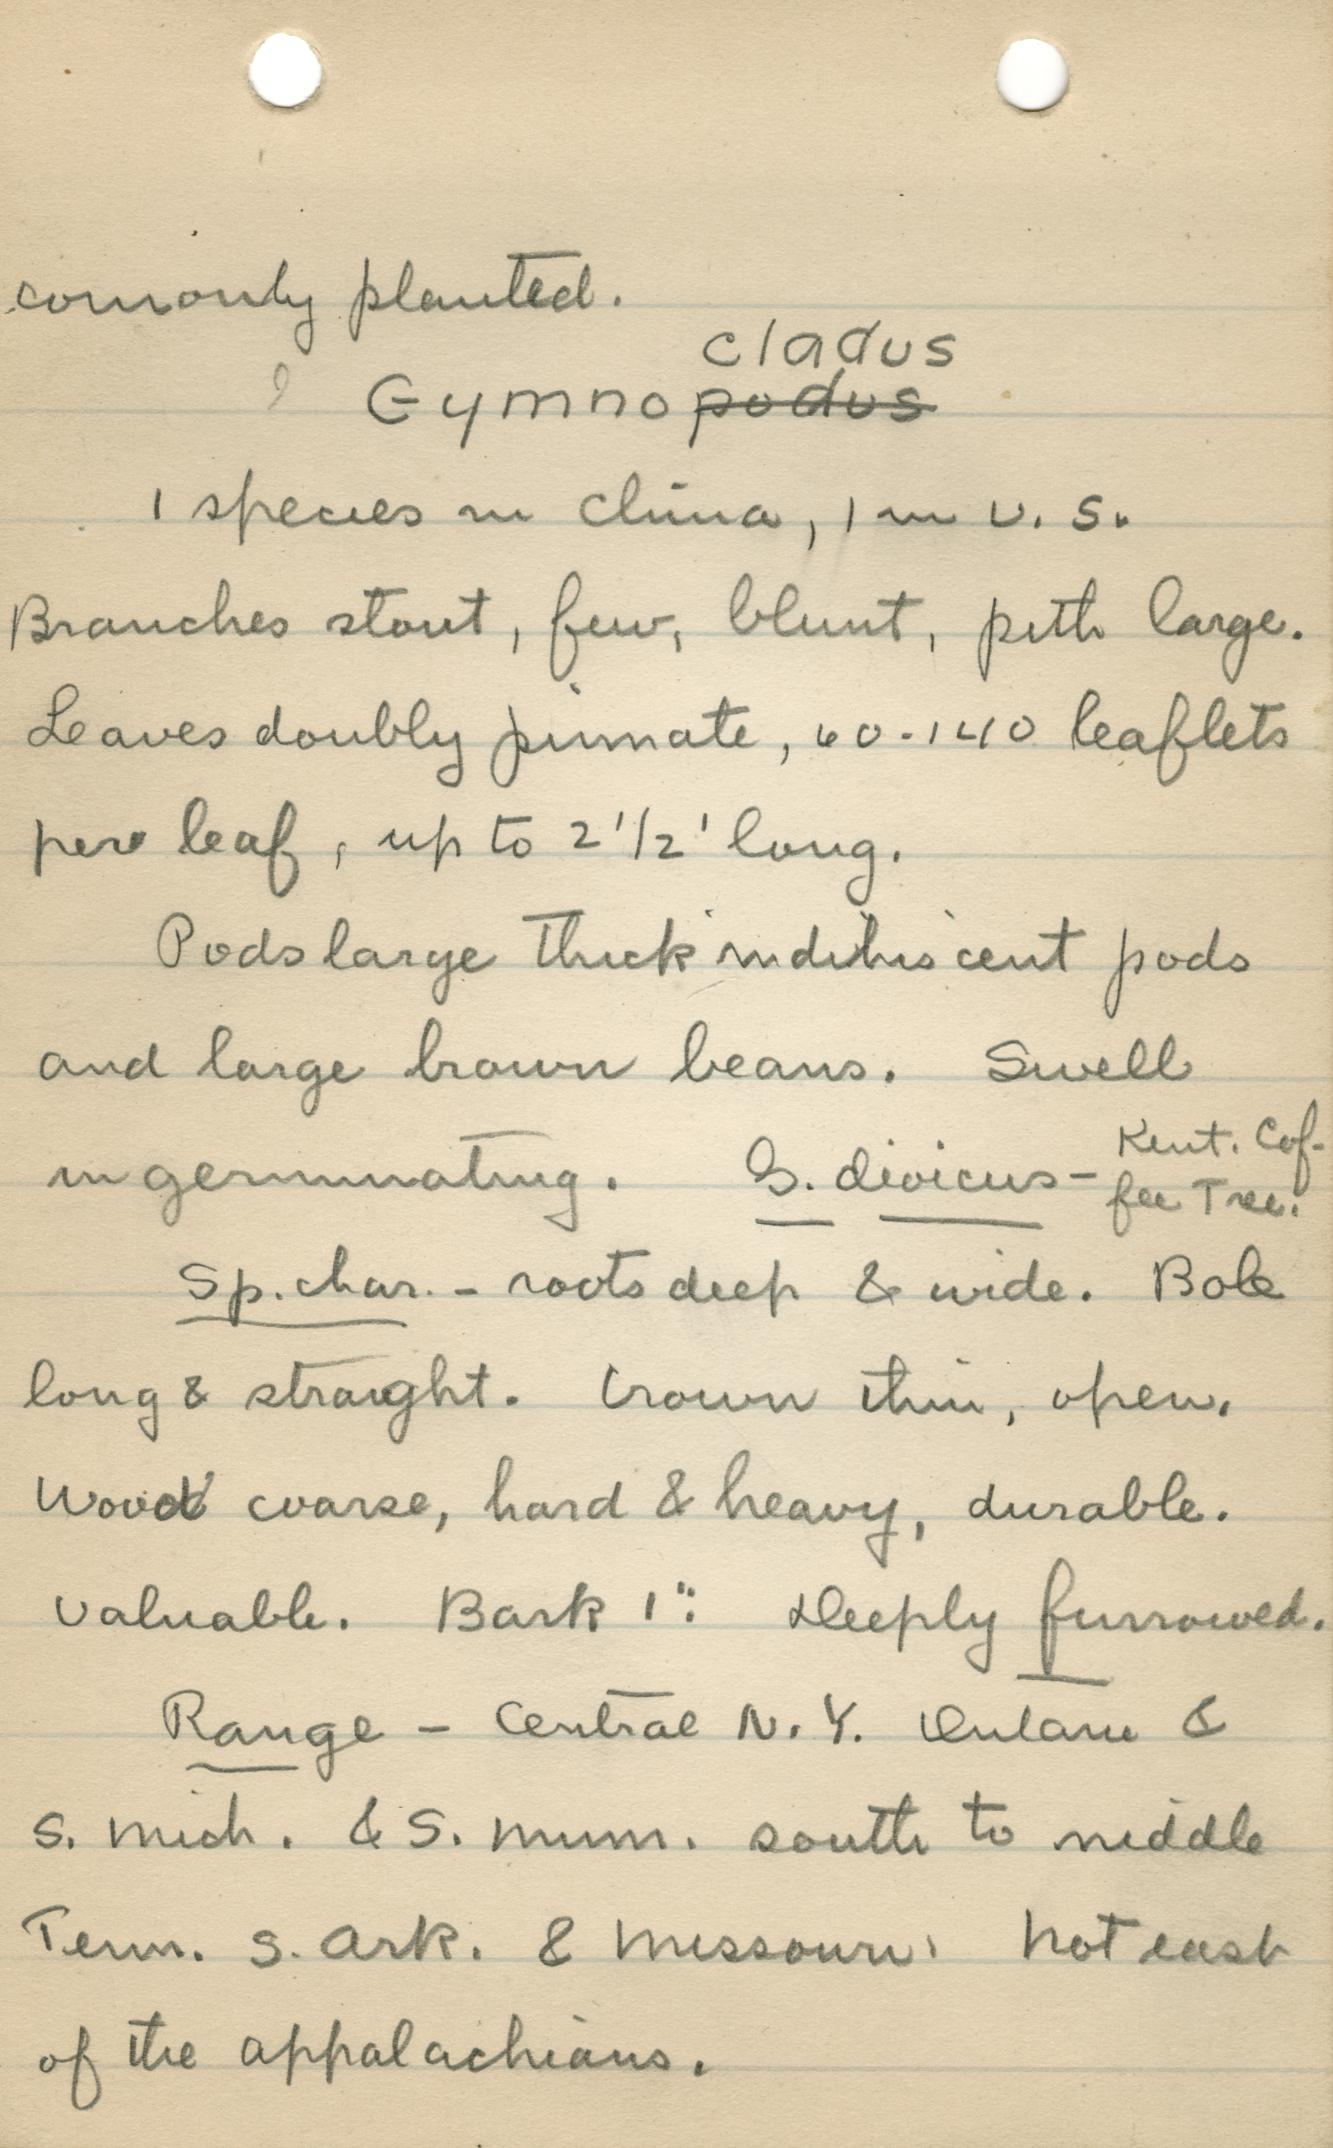 comonly planted.
cladus
Gymnopodus
1 species in China, 1 in U. S.
Branches stout, few, blunt, pith large.
Leaves doubly pinnate, 40-140 leaflets
per leaf, up to 2 1/2' long.
Pods large thick indehiscent pods
and large brown beans. Swell
in germinating. G. divicus - Kent. Cof-
fee Tree.
Sp. char. - roots deep & wide. Bole
long & straight. Crown thin, open.
Wood coarse, hard & heavy, durable.
Valuable. Bark 1". Deeply furrowed.
Range - Central N. Y. &
S. Mich. & S. Minn. south to middle
Tenn. S. Ark. & Missouri. Not east
of the appalachians.